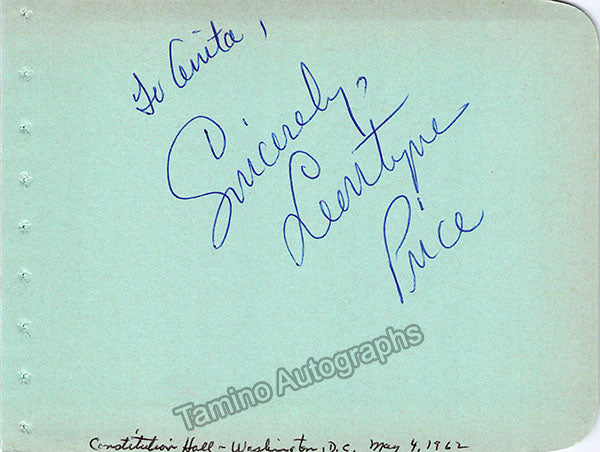 To Anita,
Sincerely,
Leontyne
Price
Tamino Autographs
Constitution Hall - Washington, D.C. May 4, 1962